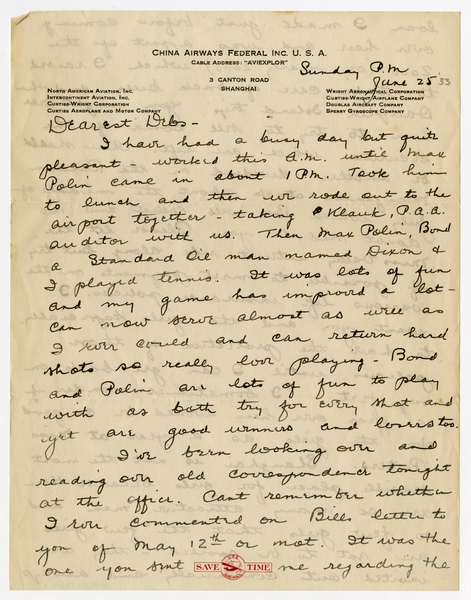 CHINA AIRWAYS FEDERAL INC. U. S. A.
CABLE ADDRESS: "AVIEXFLOR"
3 CANTON ROAD
SHANGHAI
NORTH AMERICAN AVIATION, INC.
INTERCONTINENT AVIATION, INC.
CURTISS-WRIGHT CORPORATION
CURTISS AEROPLANE AND MOTOR COMPANY
WRIGHT AERONAUTICAL CORPORATION
CURTISS-WRIGHT AIRPLANE COMPANY
DOUGLAS AIRCRAFT COMPANY
SPERRY GYROSCOPE COMPANY
Sunday P.M
June 25 33
Dearest Debs -
I have had a busy day but quite
pleasant - worked this A.M. until Max
Polin came in about 1 PM. Took him
to lunch and then we rode out to the
airport together - taking Klauk, P.A.A.
auditor with us. Then Max Polin, Bond
a Standard Oil man named Dixon &
I played tennis. It was lots of fun
and my game has improved a lot -
can now serve almost as well as
I ever could and can return hard
shots so really love playing - Bond
and Polin are lots of fun to play
with as both try for every shot and
yet are good winners and losers too.
I've been looking over and
reading over old correspondence tonight
at the office. Cant remember whether
I ever commented on Bills letter to
you of May 12th or not. It was the
one you sent me regarding the
SAVE TIME